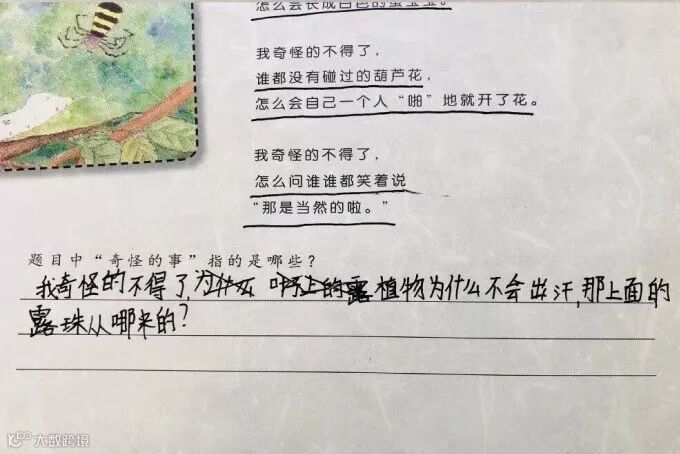 怎么会长成白色的蚕宝宝。
我奇怪的不得了，
谁都没有碰过的葫芦花，
怎么会自己一个人“啪”地就开了花。
我奇怪的不得了，
怎么问谁谁都笑着说
“那是当然的啦。”
题目中“奇怪的事”指的是哪些？
我奇怪的不得了，为什么 叶子上的露 植物为什么不会出汗，那上面的
露珠从哪来的？
大数跨境